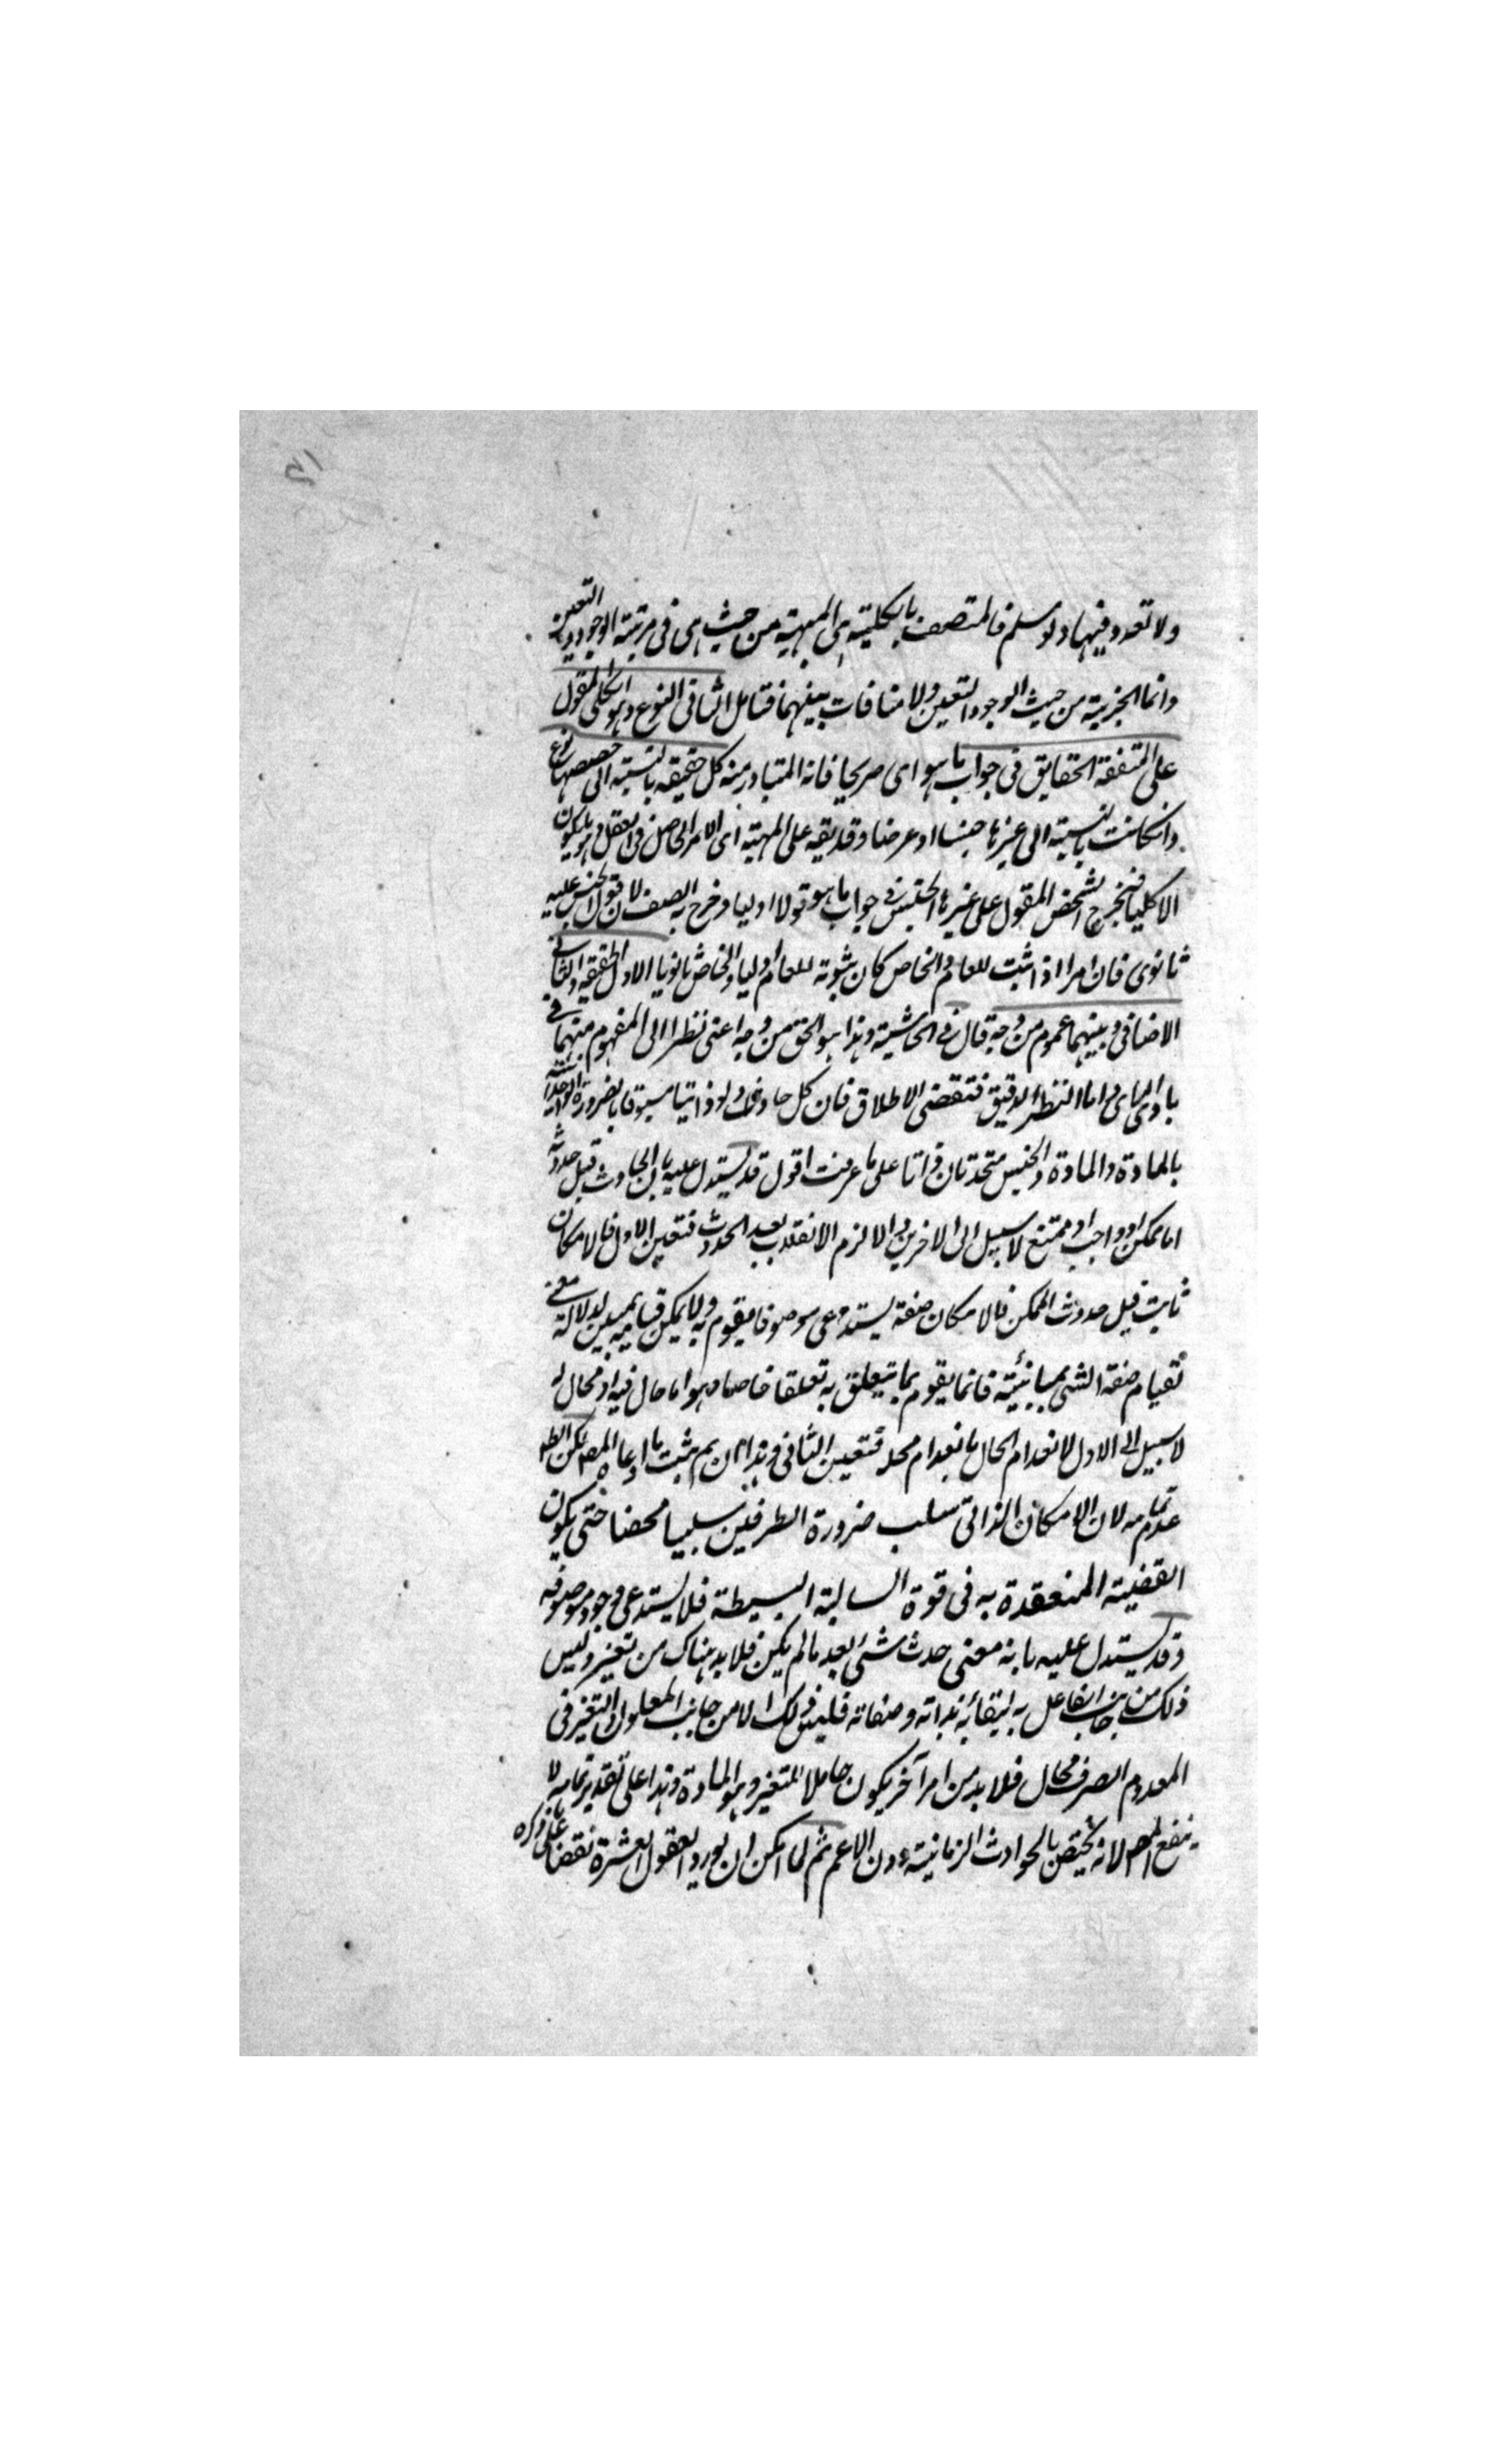 ولا تعدد فيها ولو سلم فالمتصف بالكلية هى المهية من حيث هى فى مرتبة الوجود والتعين
وانما الجزئية من حيث الوجود والتعين ولا منافات بينهما فتامل الثانى النوع وهو الكلى المقول
على المتفقة الحقايق فى جواب ما هو اى صريحا فانه المتبادر منه كل حقيقه بالنسبة الى حصصها نوع
وانكانت بالنسبة الى غيرها جنسا او عرضا وقد يقه على المهية اى الامر الحاصل فى العقل فلا يكون
الا كليا فيخرج الشخص المقول على غيرها الجنس فى جواب ما هو قولا اوليا وخرج به الصنف لان قول الجنس عليه
ثانوى فان امرا اذا ثبت للعام والخاص كان ثبوته للعام اوليا وللخاص ثانويا الاول الحقيقه والثانى
الاضافى وبينهما عموم من وجه قال فى الحاشية وهذا هو الحق من وجه اعنى نظرا الى المفهوم منهما فى
بادى الراى واما النظر الدقيق فتقضى الاطلاق فان كل حادث ولو ذاتيا مسبوقا بالضرورة
بالمادة والمادة والجنس متحدتان ذاتا على ما عرفت اقول قد يستدل عليه بان الحادث قبل حدوثه
اما ممكن او واجب او ممتنع لا سبيل الى الاخرين والا لزم الانقلاب بعد الحدوث فتعين الاول فالامكان
ثابت قبل حدوث الممكن فالامكان صفة يستدعى موصوفا يقوم به ولا يمكن قيامه بمباين له لا معنى
لقيام صفة الشى بمباينية فانما يقوم بما يتعلق به تعلقا خاصا وهو اما حال فيه او محال له
لا سبيل الى الاول لانعدام الحال بانعدام محله فتعين الثانى وهذا ان تم يثبت ما ادعاه المصه لكن الظه
عدم تمامه لان الامكان الذاتى سلب ضرورة الطرفين سلبيا محضا حتى يكون
القضية المنعقدة به فى قوة السالبة البسيطة فلا يستدعى وجود موصوفه
وقد يستدل عليه بانه معنى حدث شئ بعد ما لم يكن فلا بد هناك من تغير وليس
ذلك من جانب الفاعل به لبقائه بذاته وصفاته فليس ذلك الا من جانب المعلول والتغير فى
المعدوم الصرف محال فلا بد من امر آخر يكون حاملا للتغير وهو المادة وهذا على تقدير تمامه لا
ينفع المصه لانه يختص بالحوادث الزمانية دون الاعم ثم لما امكن ان يورد العقول العشرة نقضا على ما ذكره